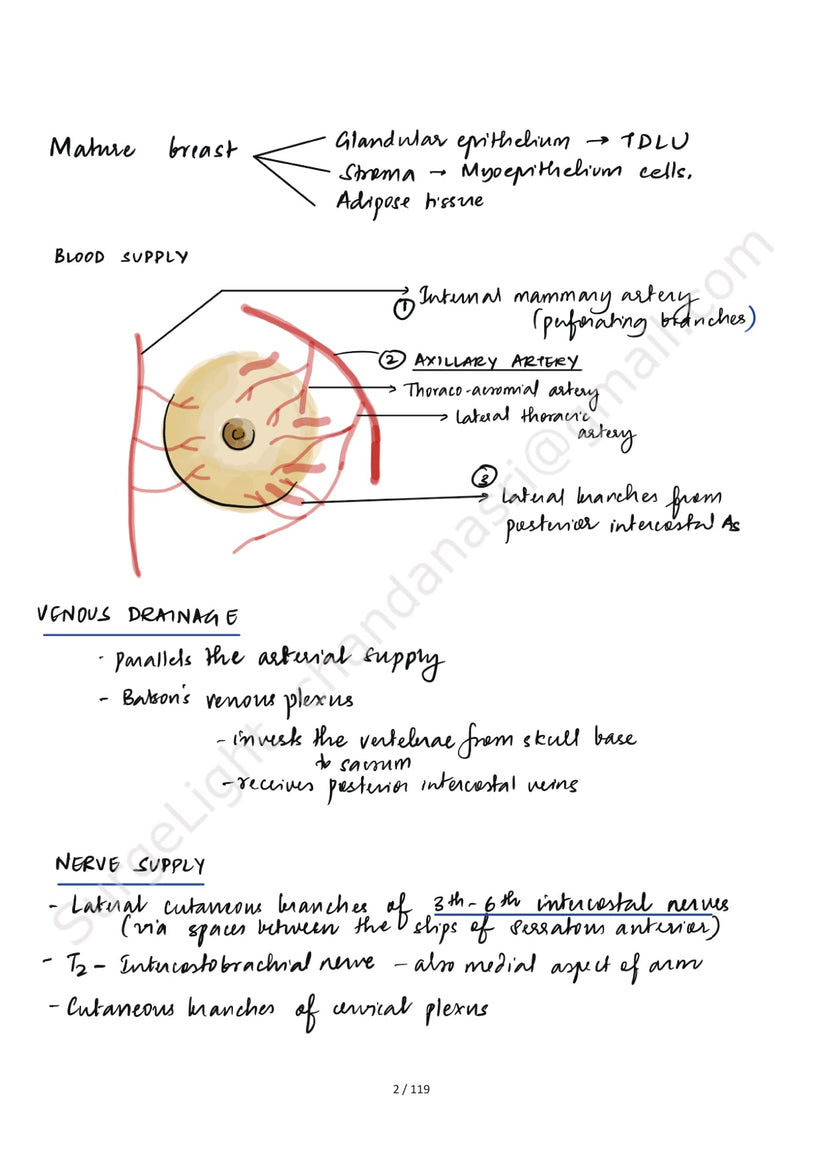 Mature breast
Glandular epithelium → TDLU
Stroma → Myoepithelium cells.
Adipose tissue
BLOOD SUPPLY
① Internal mammary artery
(perforating branches)
② AXILLARY ARTERY
Thoraco-acromial artery
lateral thoracic
artery
③
lateral branches from
posterior intercostal As
VENOUS DRAINAGE
· parallels the arterial supply
- Batson's venous plexus
- invests the vertebrae from skull base
to sacrum
- receives posterior intercostal veins
NERVE SUPPLY
- Lateral cutaneous branches of 3th - 6th intercostal nerves
(via spaces between the slips of serratous anterior)
- T2 - Intercostobrachial nerve - also medial aspect of arm
- Cutaneous branches of cervical plexus
SurgeLight chandanassi@gmail.com
2 / 119